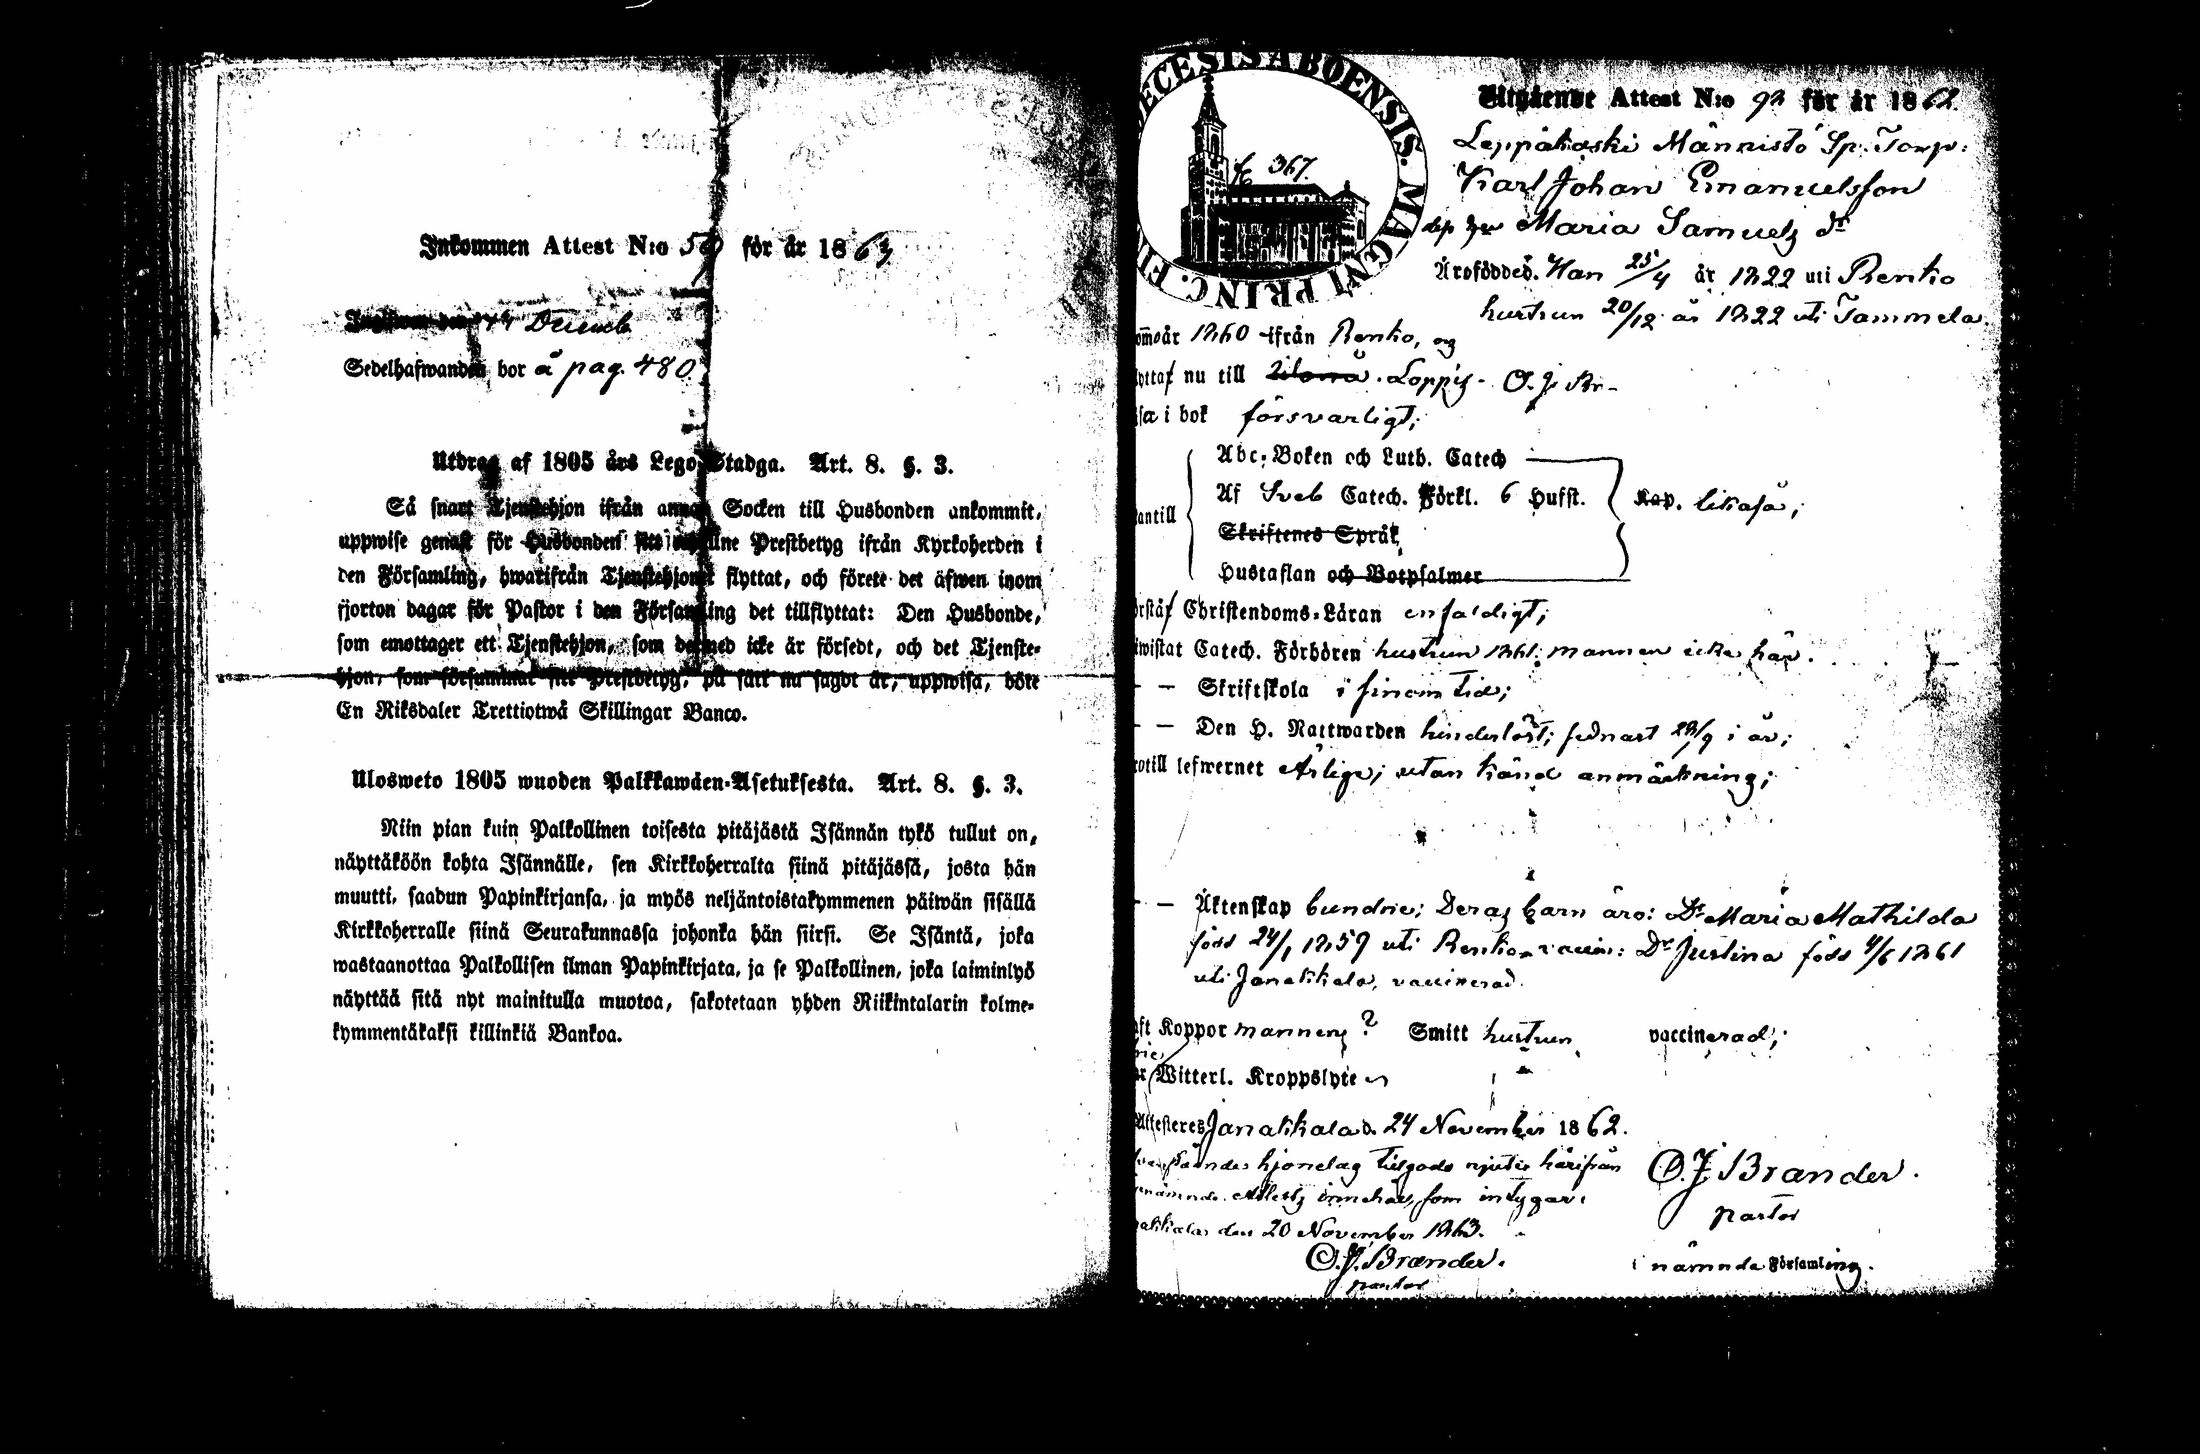 Inkommen Attest N:o 59 för år 1863
Decemb
Sedelhafwanden bor å pag. 480.
Utdrag af 1805 års Lego-Stadga. Art. 8. §. 3.
Så snart Tjenstehjon ifrån annan Socken till Husbonden ankommit,
uppwise genast för Husbonden sitt Prestbetyg ifrån Kyrkoherden i
den Församling, hwarifrån Tjenstehjonet flyttat, och förete det äfwen inom
fjorton dagar för Pastor i den Församling det tillflyttat: Den Husbonde,
som emottager ett Tjenstehjon, som dermed icke är försedt, och det Tjenste-
hjon, som försummat sitt Prestbetyg, på sätt nu sagdt är, uppwisa, böte
En Riksdaler Trettiotwå Skillingar Banco.
Ulosweto 1805 wuoden Palkkawäen-Asetuksesta. Art. 8. §. 3.
Niin pian kuin Palkollinen toisesta pitäjästä Isännän tykö tullut on,
näyttäköön kohta Isännälle, sen Kirkkoherralta siinä pitäjässä, josta hän
muutti, saadun Papinkirjansa, ja myös neljäntoistakymmenen päiwän sisällä
Kirkkoherralle siinä Seurakunnassa johonka hän siirsi. Se Isäntä, joka
wastaanottaa Palkollisen ilman Papinkirjata, ja se Palkollinen, joka laiminlyö
näyttää sitä nyt mainitulla muotoa, sakotetaan yhden Riikintalarin kolme-
kymmentäkaksi killinkiä Bankoa.
ECESIS ABOENSIS. MAGNI PRINC. FI
367.
Utgående Attest N:o 92 för år 1862.
Leppäkoski Männistö Sp. Torp.
Karl Johan Emanuelsson
Maria Samuels dr
Äro födde: Han 25/4 år 1822 uti Renko
hustrun 20/12 år 1822 uti Tammela.
år 1860 ifrån Renko, og
nu till Loppis. O. J. Br-
i bok försvarligt;
Abc-Boken och Luth. Catech
Af Sveb Catech. Förkl. 6 Husst. Kap. likaså;
antill
Skriftenes Språk
Hustaflan och Botpsalmer
Christendoms-Läran enfaldigt;
wistat Catech. Förhören hustrun 1861; mannen icke här.
— — Skriftskola i sinom tid;
— — Den H. Nattwarden hinderlöst; sednast 28/9 i år;
till lefwernet Ärlige; utan känd anmärkning;
— — Äktenskap bundne; Deras barn äro: Dr Maria Mathilda
född 24/1 1859 uti Renko, vaccin: Dr Justina född 4/6 1861
uti Janakkala, vaccinerad.
Koppor mannen? Smitt hustrun vaccinerad;
Witterl. Kroppslyte
Attesteres Janakkala d. 24 November 1862.
hjonelag tilgodo njuter härifrån
innehåll, som intygar;
den 20 November 1863.
O. J. Brander.
pastor
O. J. Brander.
pastor
i nämnde Församling.